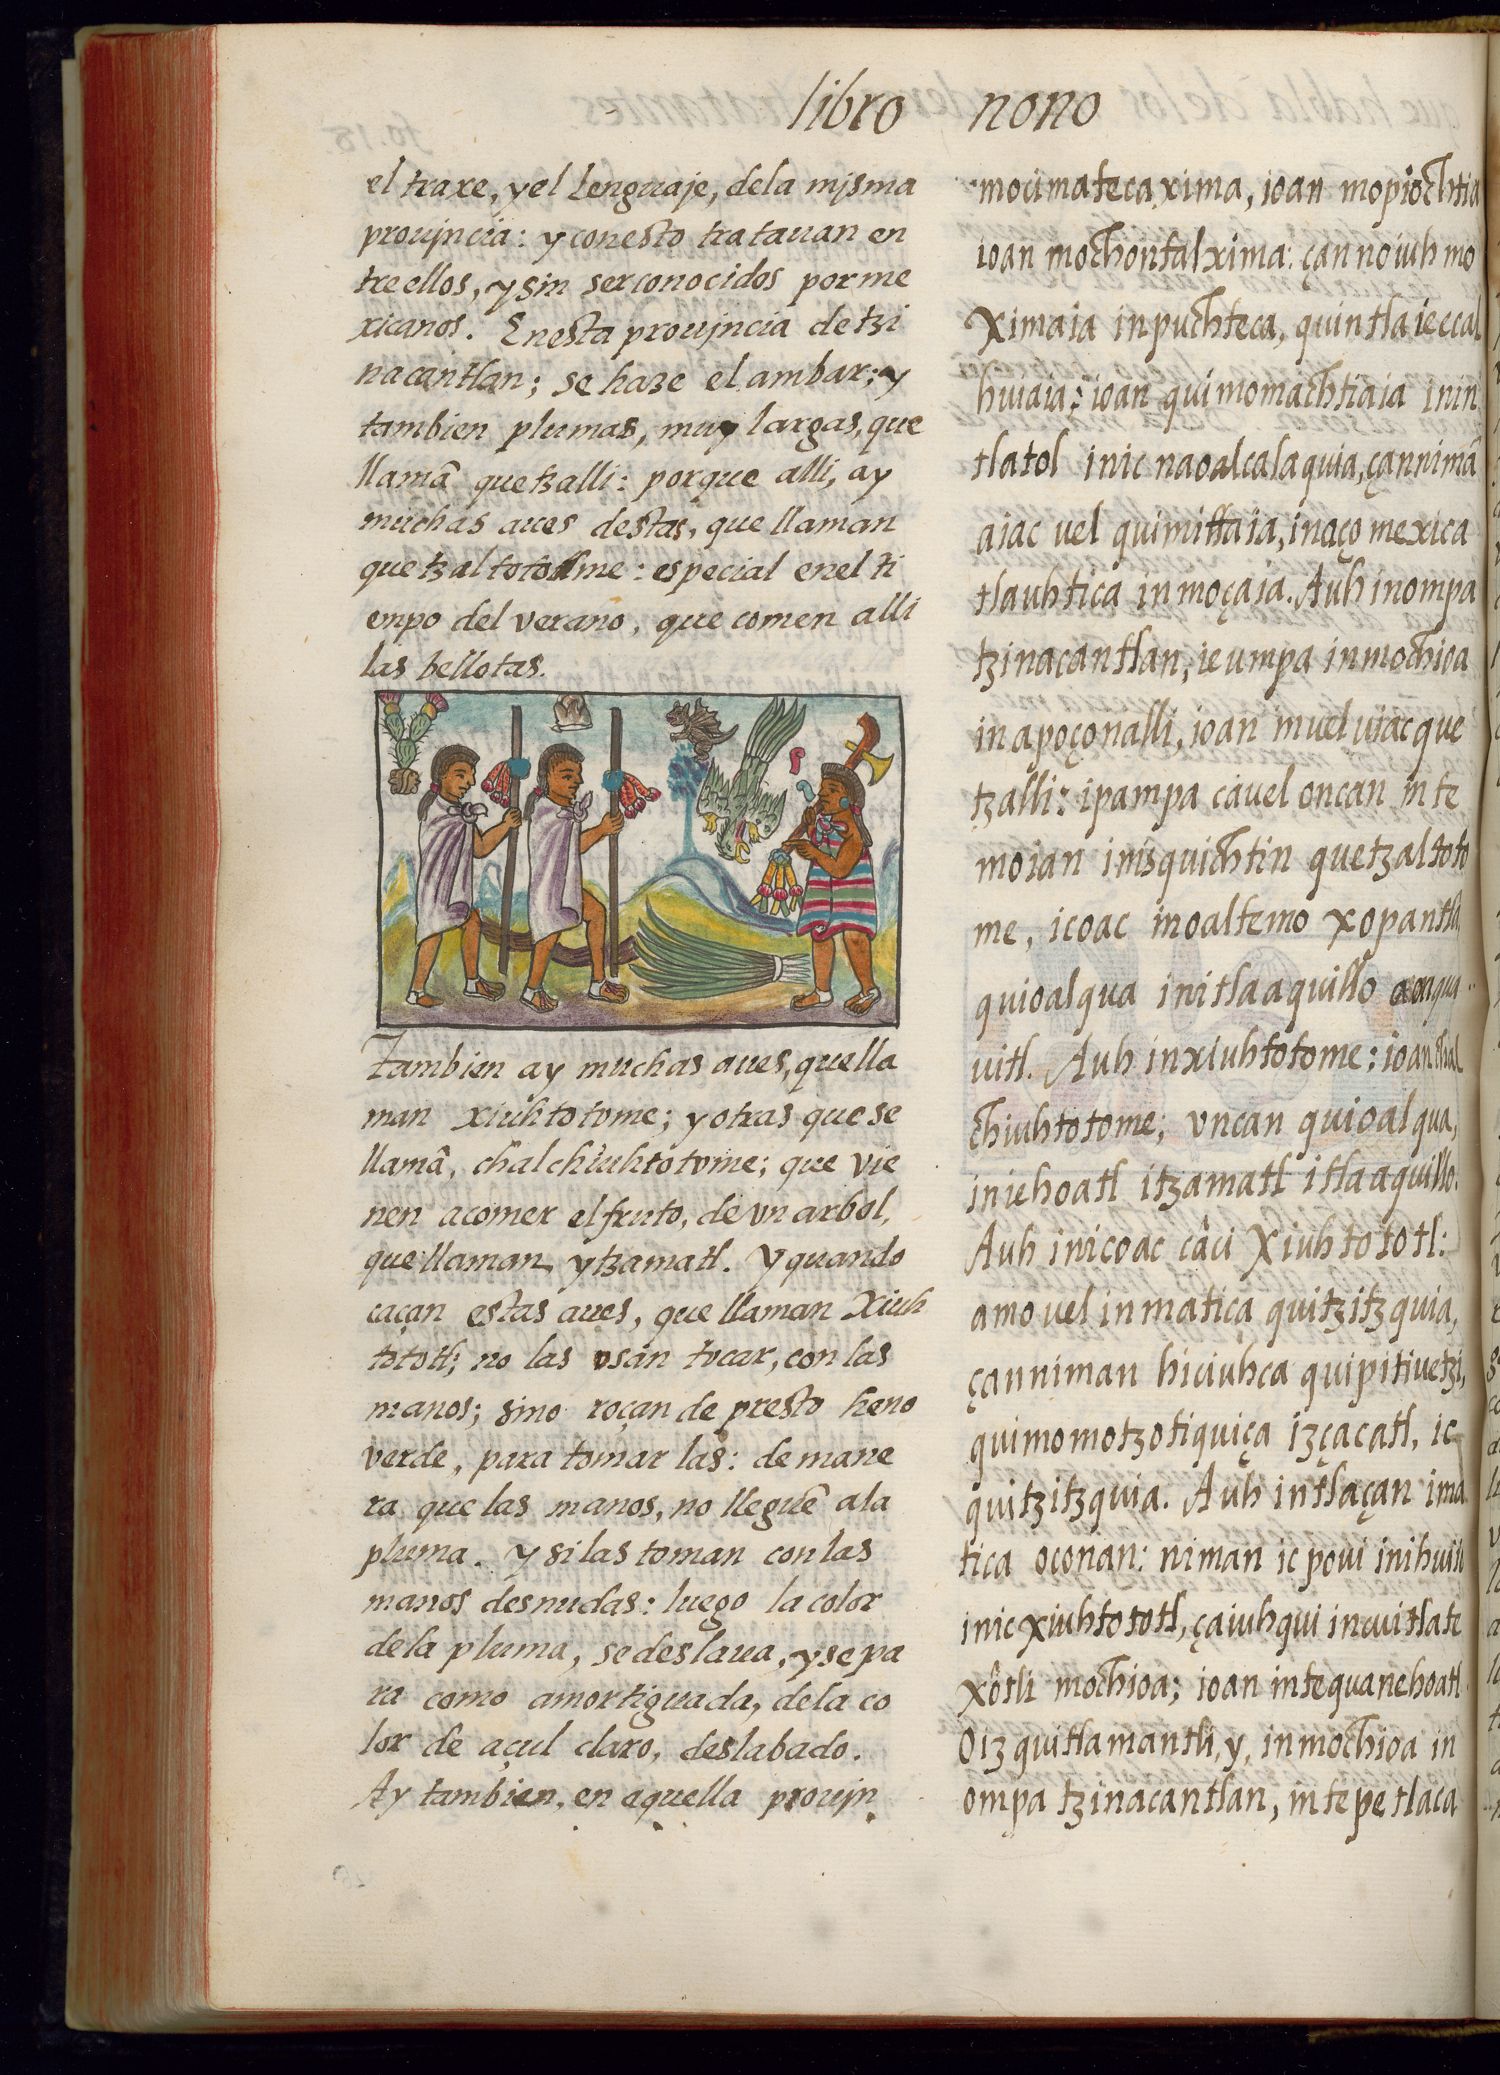 libro nono
el traxe, y el lenguaje, dela mjsma
proujncia: y conesto tratauan en
tre ellos, y sin ser conocidos por me
xicanos. Enesta proujncia de tzi
nacantlan; se haze el ambar; y
tambien plumas, muy largas, que
llamã quetzalli: porque alli, ay
muchas aues destas, que llaman
quetzaltotome: especial enel ti
empo del verano, que comen alli
las bellotas.
Tambien ay muchas aues, que lla
man xiuhtotome; y otras que se
llamã, chalchiuhtotome; que vie
nen acomer el fruto, de vn arbol,
que llaman ytzamatl. Y quando
caçan estas aues, que llaman Xiuh
tototl; no las osan tocar, con las
manos; sino roçan de presto heno
verde, para tomar las: de mane
ra que las manos, no lleguẽ ala
pluma. y si las toman con las
manos desnudas: luego la color
dela pluma, se deslaua, y se pa
ra como amortiguada, dela co
lor de açul claro, deslabado.
Ay tambien, en aquella proujn
mocimatecaxima, ioan mopiochtia
ioan mochontalxima: çan no iuh mo
Ximaia in puchteca, quintlaieccal
huiaia: ioan quimomachtiaia inin
tlatol inic naoalcalaquia, çan nimã
aiac vel quimittaia, in aço mexica
tlauhtica in moçaia. Auh in ompa
tzinacantlan, ie umpa in mochioa
in apoçonalli, ioan in vel viac que
tzalli: ipampa ca uel oncan in te
moian in isquichtin quetzaltoto
me, icoac in oaltemo xopantla,
quioalqua in itlaaquillo aoaqua
uitl. Auh in xiuhtotome: ioan chal
chiuhtotome; vncan quioalqua,
in iehoatl itzamatl itlaaquillo.
Auh in icoac câci Xiuhtototl:
amo uel inmatica quitzitzquia,
çan niman hiciuhca quipitiuetzi,
quimomotzotiquiça izçacatl, ic
quitzitzquia. Auh intlaçan ima
tica oconan: niman ic poui inihuiio
inic xiuhtototl, ça iuhqui in cuitlate
xôtli mochioa; ioan in tequanehoatl.
Oizquitlamantli, y, in mochioa in
ompa tzinacantlan, in tepetlaca